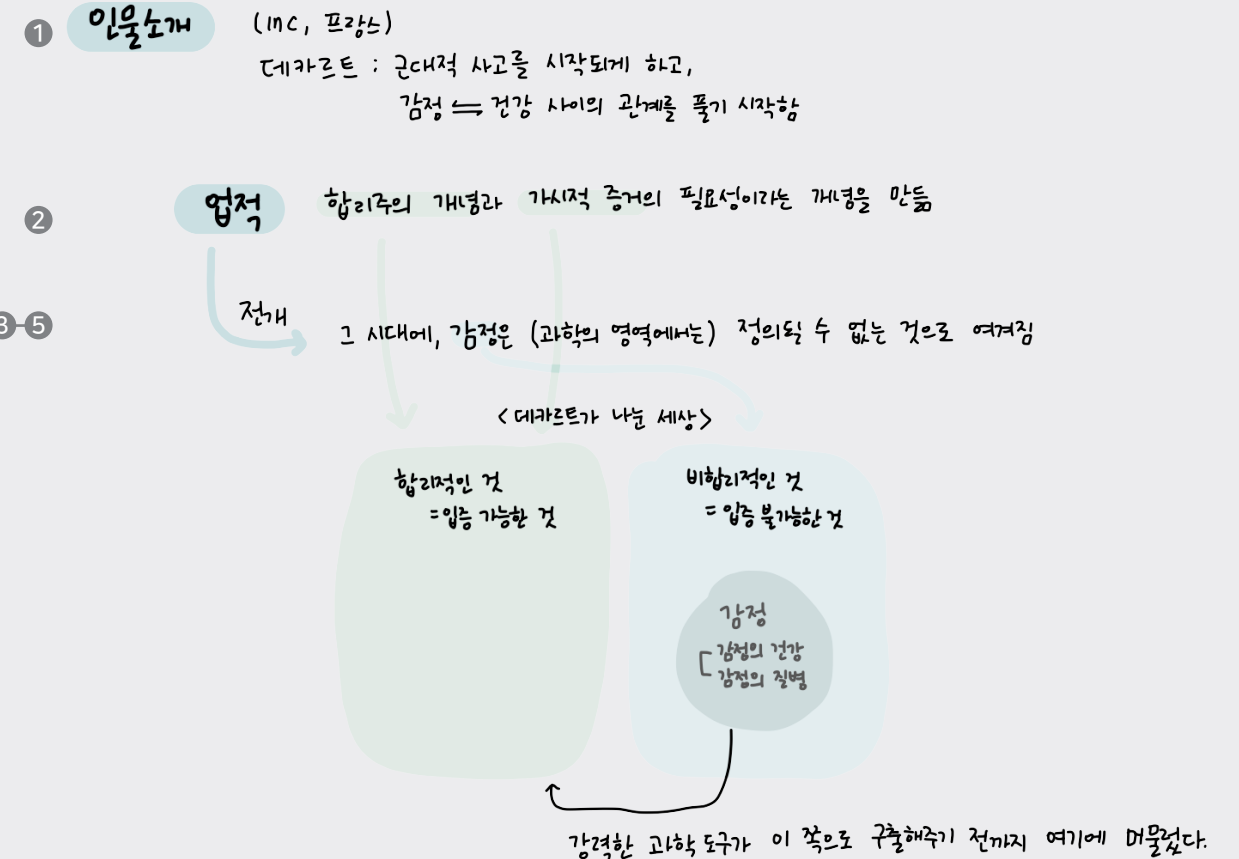 1 인물소개 (17C, 프랑스)
데카르트 : 근대적 사고를 시작되게 하고,
감정 ⇋ 건강 사이의 관계를 풀기 시작함
2 업적 합리주의 개념과 가시적 증거의 필요성이라는 개념을 만듦
3-5 전개 그 시대에, 감정은 (과학의 영역에서는) 정의될 수 없는 것으로 여겨짐
<데카르트가 나눈 세상>
합리적인 것
=입증 가능한 것
비합리적인 것
= 입증 불가능한 것
감정
감정의 건강
감정의 질병
강력한 과학 도구가 이 쪽으로 구출해주기 전까지 여기에 머물렀다.